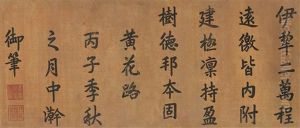 伊犁二萬程
遠徼皆內附
建極凛持盈
樹德邦本固
黄花路
丙子季秋
之月中澣
御筆